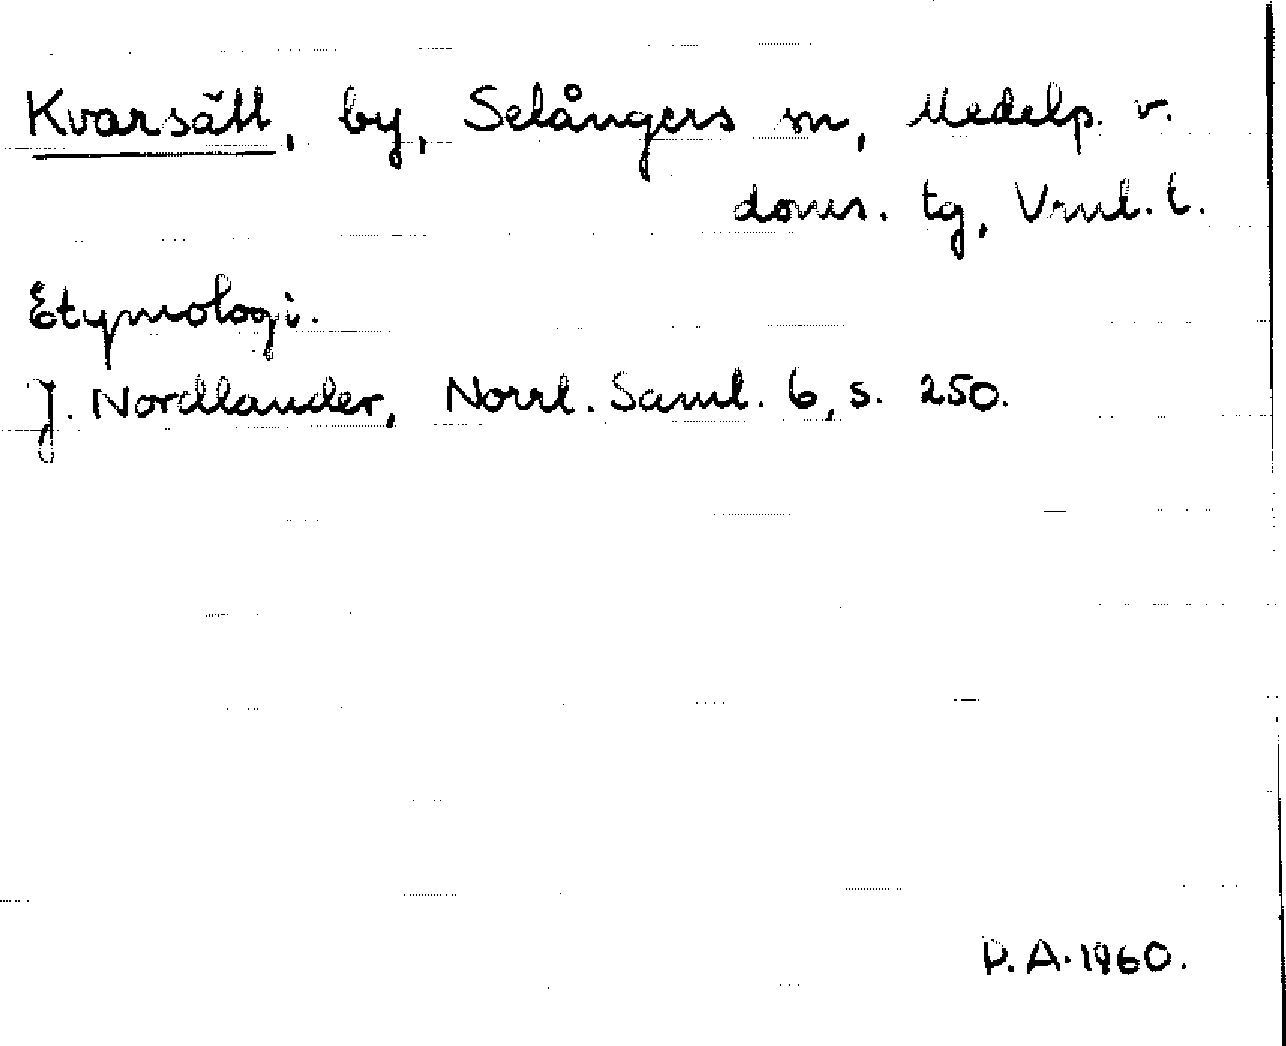 Kvarsätt, by, Selångers sn, Medelp. v.
doms. tg, Vrnl. l.
Etymologi.
J. Nordlander, Norrl. Saml. 6, s. 250.
D. A. 1960.